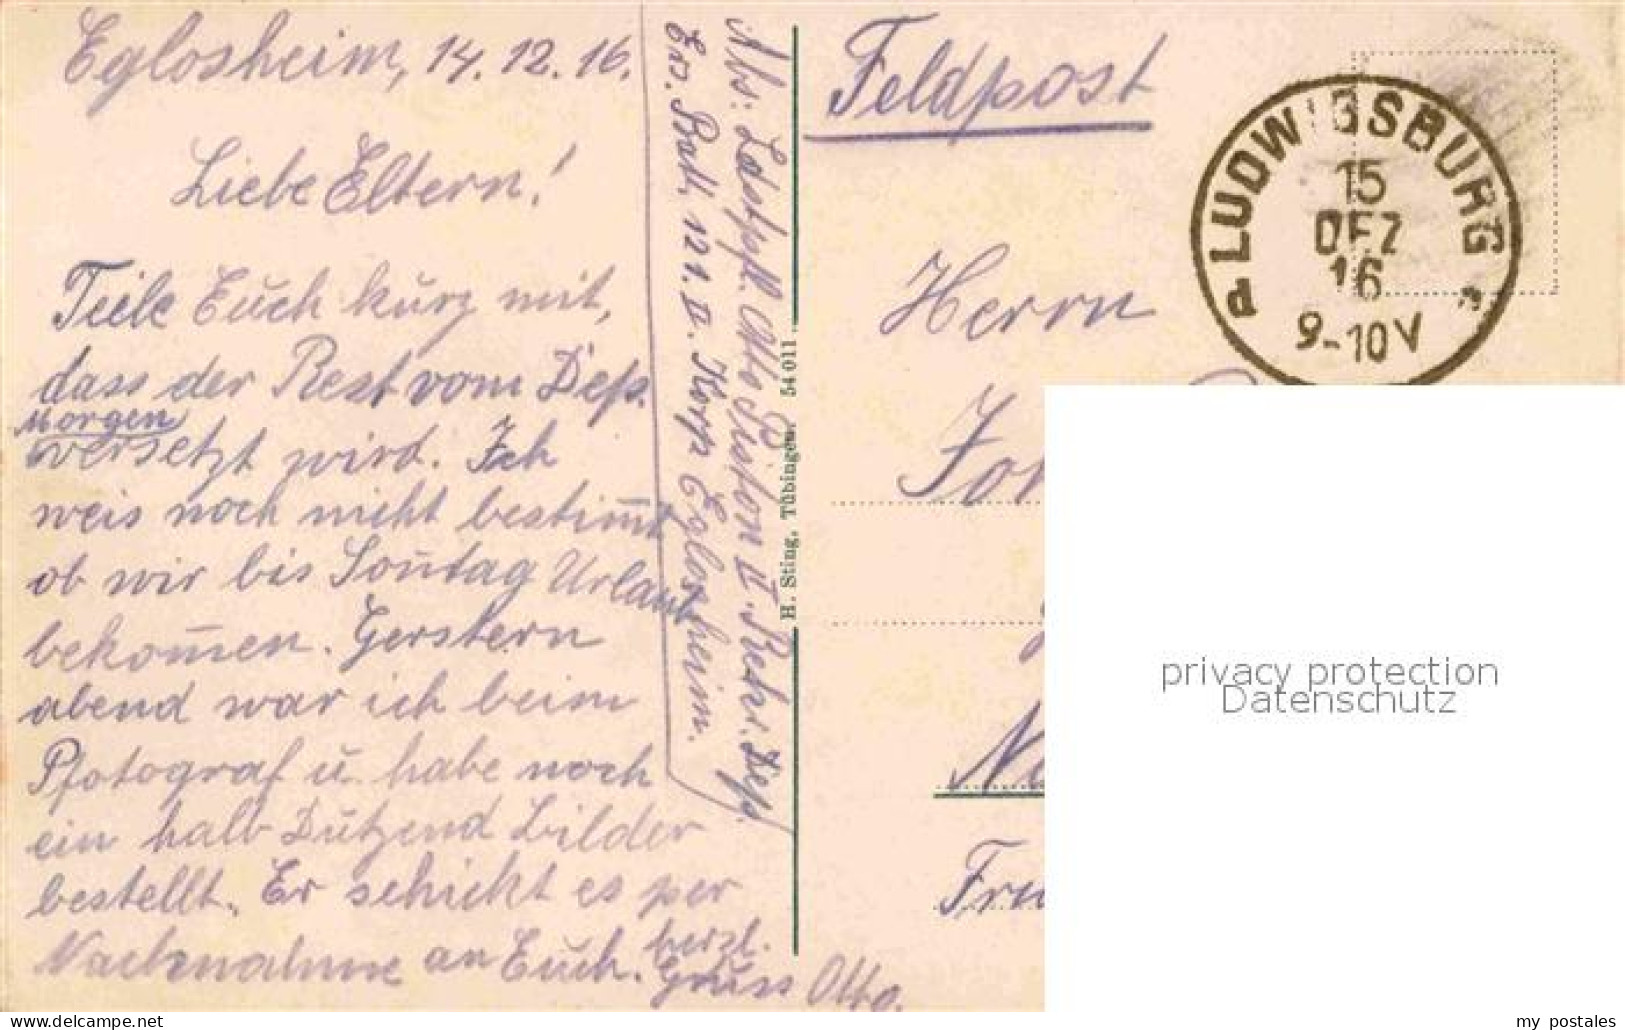 Eglosheim, 14. 12. 16.
Liebe Eltern!
Teile Euch kurz mit,
dass der Rest vom Dep.
Morgen
versetzt wird. Ich
weis noch nicht bestim̄t
ob wir bis Son̄tag Urlaub
bekom̄en. Gerstern
abend war ich beim
Pfotograf u. habe noch
ein halb Dutzend Bilder
bestellt. Er schickt es per
Nachnahme an Euch. herzl.
Gruss Otto.
Abs: Ldstpfl. Otto II. Rekr. Dep.
Ers. Batl. 121. II. Korp Eglosheim.
H. Sting, Tübingen. 54 011
Feldpost
LUDWIGSBURG
15
DEZ
16
9-10V
Herrn
privacy protection
Datenschutz
my postales
www.delcampe.net